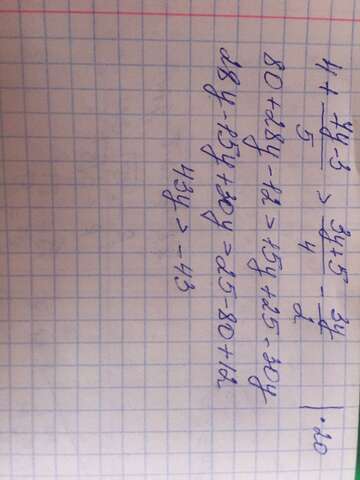 4 + \frac{7y-3}{5} > \frac{3y+5}{4} - \frac{3y}{2} | ·20
80+28y-12 > 15y+25-30y
28y-15y+30y = 25-80+12
43y > -43